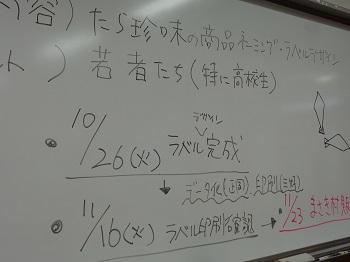 容) たら珍味の商品ネーミング・ラベルデザイン
ト) 若者たち(特に高校生)
デザイン
・10/26(火) ラベル完成
↓ データ化(正円) 印刷(三好)
・11/16(火) ラベル印刷 確認 → 11/23 まさき村